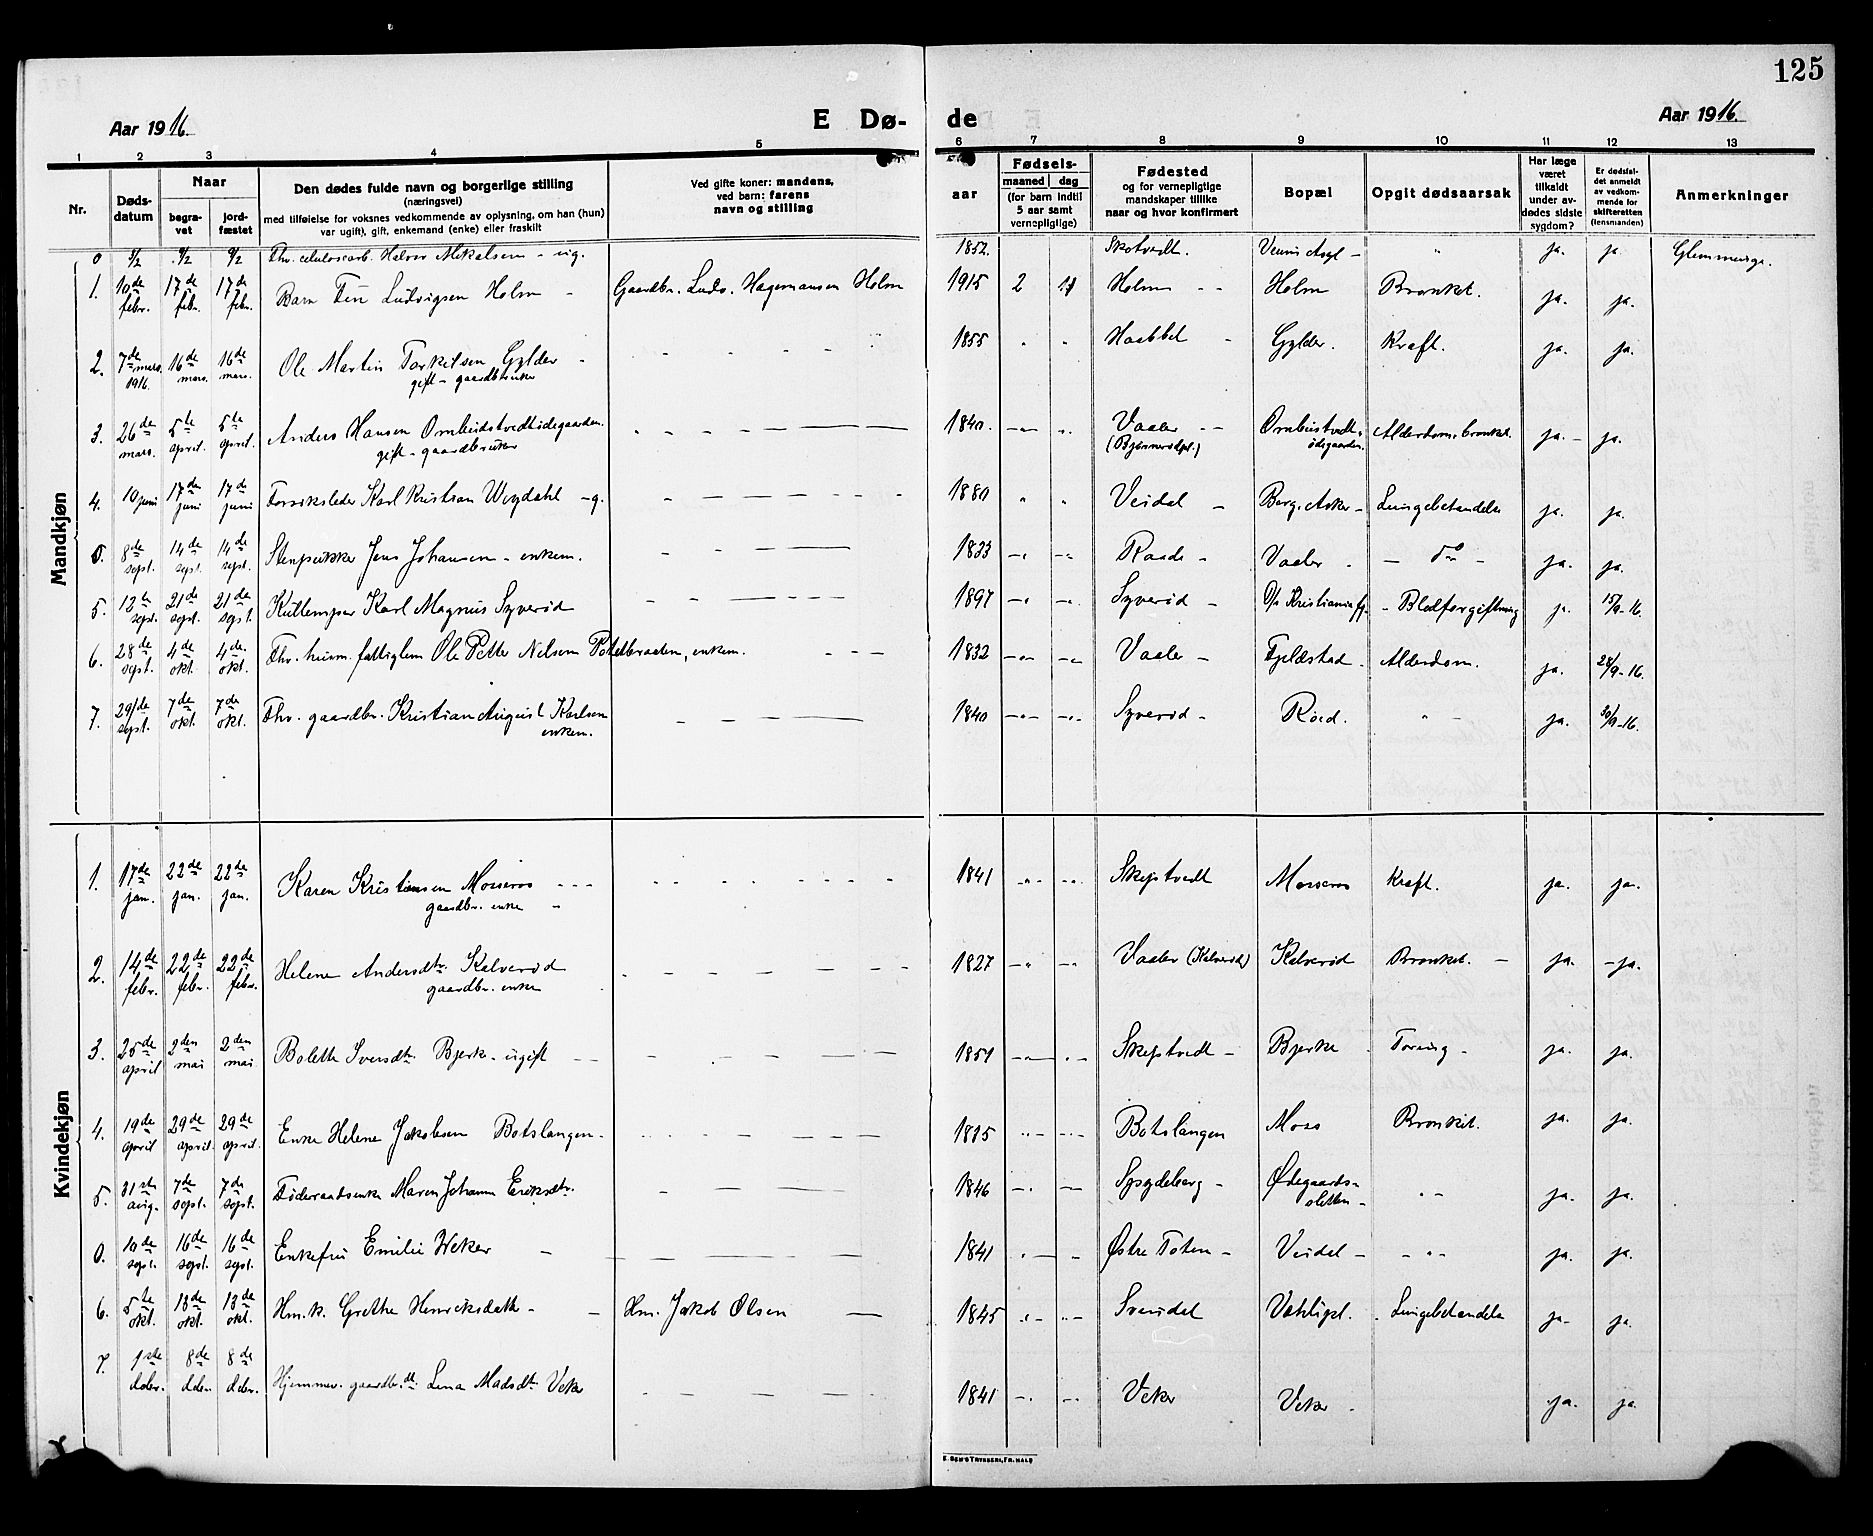 125
Aar 1916. E Dø- de Aar 1916.
1 2 3 4 5 6 7 8 9 10 11 12 13
Nr. Døds-datum Naar begra-vet jord-fæstet
Den dødes fulde navn og borgerlige stilling
(næringsvei)
med tilføielse for voksnes vedkommende av oplysning, om han (hun)
var ugift), gift, enkemand (enke) eller fraskilt
Ved gifte koner: mandens,
ved barn: farens
navn og stilling
aar
Fødsels-
maaned dag
(for barn indtil
5 aar samt
vernepligtige)
Fødested
og for vernepligtige
mandskaper tillike
naar og hvor konfirmert
Bopæl
Opgit dødsaarsak
Har læge
været
tilkaldt
under av-
dødes sidste
sygdom?
Er dødsfal-
det anmeldt
av vedkom-
mende for
skifteretten
(lensmanden)
Anmerkninger
Mandkjøn
0 Fhv. celulosearb. Halvor Mikalsen - ug. 1852. Skotvedt. " ja. ja.
1. 10de febr. 17de febr. 17de febr. Barn Finn Ludvigsen Holm - Gaardbr. Ludv. Hagemansen Holm 1915 2 Holm Holm Bronkit. ja. ja.
2. 7de mars. 1916. 16de mars. 16de mars. Ole Martin Torkilsen Gylder - 1855 Haabbel Gylder. Kraft. ja. ja.
gift - gaardbruker
3. 26de mars. 5te april. 5te april. Anders Hansen Ombudstvedtødegaarden. 1840. Vaaler Alderdom. bronkit. ja. - ja.
gift - gaardbruker
4. 10 juni 17de juni 17de juni Karl Kristian Wegdahl - g. 1880 Veidal Lungebetændelse ja. ja.
0. 8de sept. 14de sept. 14de sept. Jens Johansen - enkem. 1833 Raade - Vaaler - do - ja. ja.
5. 13te sept. 21de sept. 21de sept. Karl Magnus Syverød 1897 Syverød - Blodforgiftning j. 15/9-16.
6. 28de sept. 4de okt. 4de okt. Fhv. husm. fattiglem Ole Petter Nilsen enkem. 1832 Vaaler - Fjeldstad. Alderdom. ja. 28/9-16.
7. 29de sept. 7de okt. 7de okt. Fhv. gaardbr. Kristian August Karlsen 1840 Syverød - Røed. " - ja. 30/9-16.
enkem.
Kvindekjøn
1. 17de jan. 22de jan. 22de jan. Karen Kristiansen Mosseros 1841 Skiptvedt Mosseros Kraft. ja. ja.
gaardbr. enke
2. 14de febr. 22de febr. 22de febr. Helene Andersdtr. Kalverød 1827 Vaaler (Kalverød) Kalverød Bronkit. - ja. - ja.
gaardbr. enke
3. 25de april 2den mai 2den mai Bolette Iversdtr. Bjerke - ugift 1851 Skiptvedt - Bjerke Tæring - ja. ja.
4. 19de april 29de april. 29de april. Enke Helene Jakobsen Botslangen. Botslangen Moss Bronkit. ja. ja.
5. 31ste aug. 7de sept. 7de sept. Føderaadsenke Maren Johanne Eriksdtr. 1846 Spydeberg - Ødegaards-sletten - " ja. ja.
0. 10de sept. 16de sept. 16de sept. Enkefru Emilie Weker 1841 Østre Toten - Veidal - - " - ja. ja.
6. 5te okt. 13de okt. 13de okt. Hm.k. Grethe Henriksdatter - Hm. Jakob Olsen 1845 Svindal Lungebetændelse ja - ja.
7. 1ste dcbr. 8de dcbr. 8de dcbr. Hjemmev. gaardbr.dtr. Lina Madsdtr. Veker 1841 Veker Veker - ja. ja.